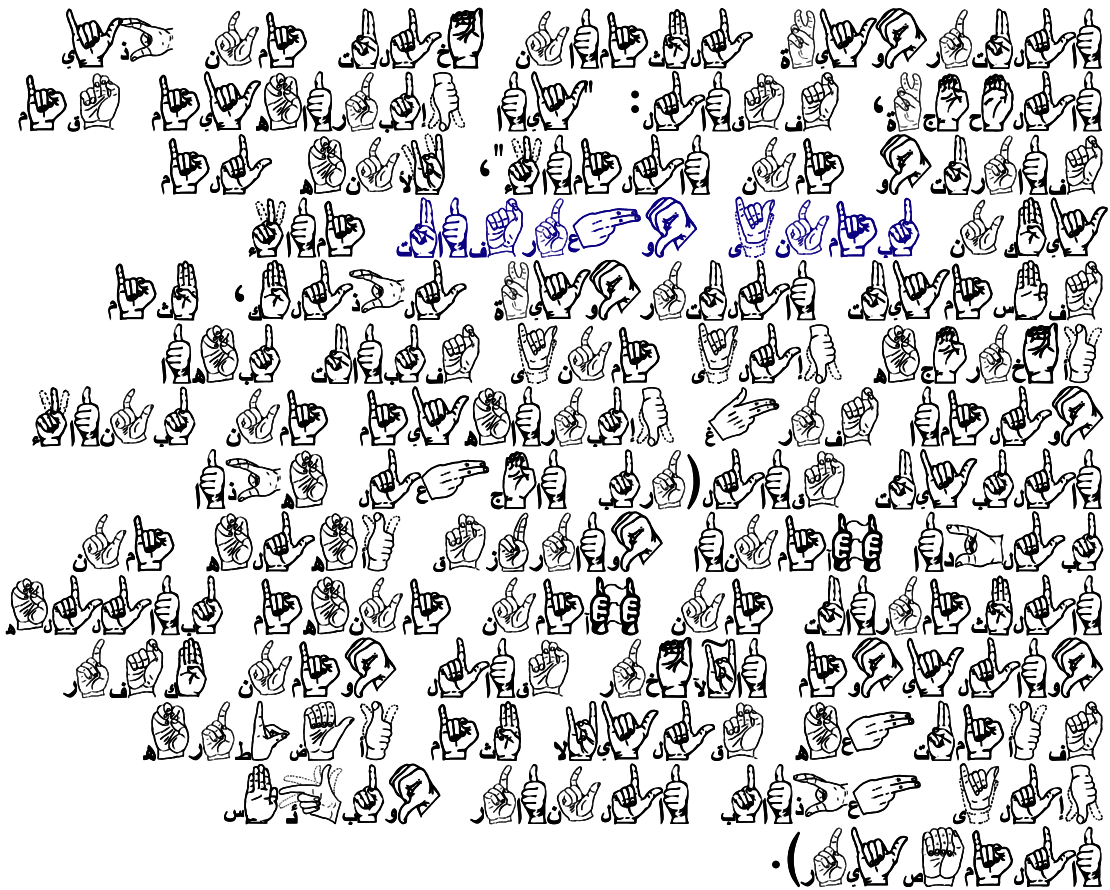 التروية لثمان خلت من ذي
الحجة، فقال: "يا إبراهيم قم
فارتو من الماء"، لأنه لم
يكن بمنى وعرفات ماء
فسميت التروية لذلك، ثم
أخرجه إلى منى فبات بها
ولما فرغ إبراهيم من بناء
البيت قال (رب اجعل هذا
بلدا آمنا وارزق أهله من
الثمرات من آمن منهم بالله
واليوم الآخر قال ومن كفر
فأمتعه قليلا ثم أضطره
إلى عذاب النار وبئس
المصير).